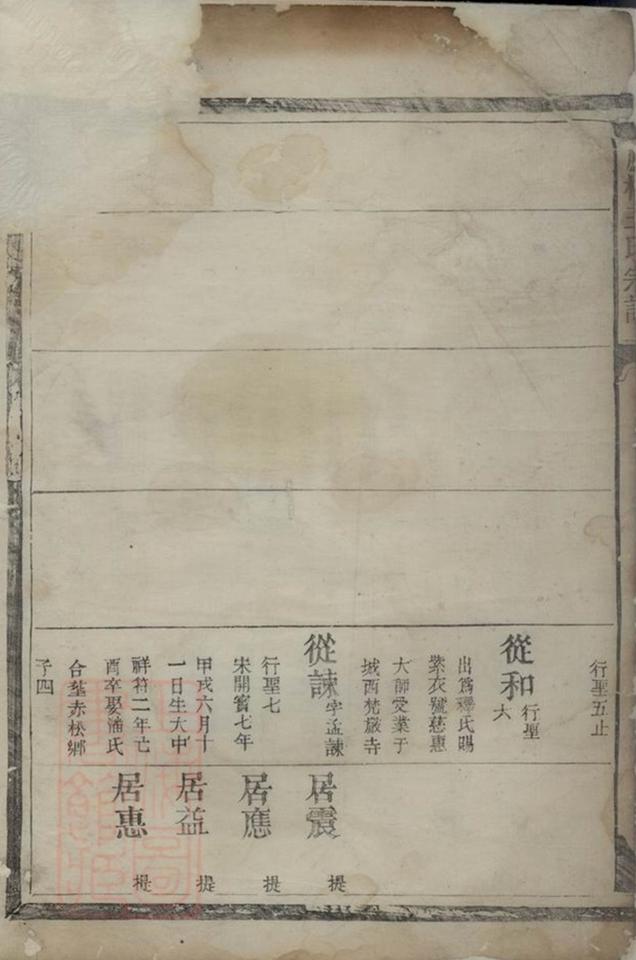 氏宗譜
行聖五止
從和 行聖
大
出爲釋氏賜
紫衣號慈惠
大師受業于
城西梵嚴寺
從諫 字孟諫
行聖七
宋開寶七年
甲戌六月十
一日生大中
祥符二年亡
酉卒娶潘氏
合塟赤松鄉
子四
居震 提
居應 提
居益 提
居惠 提